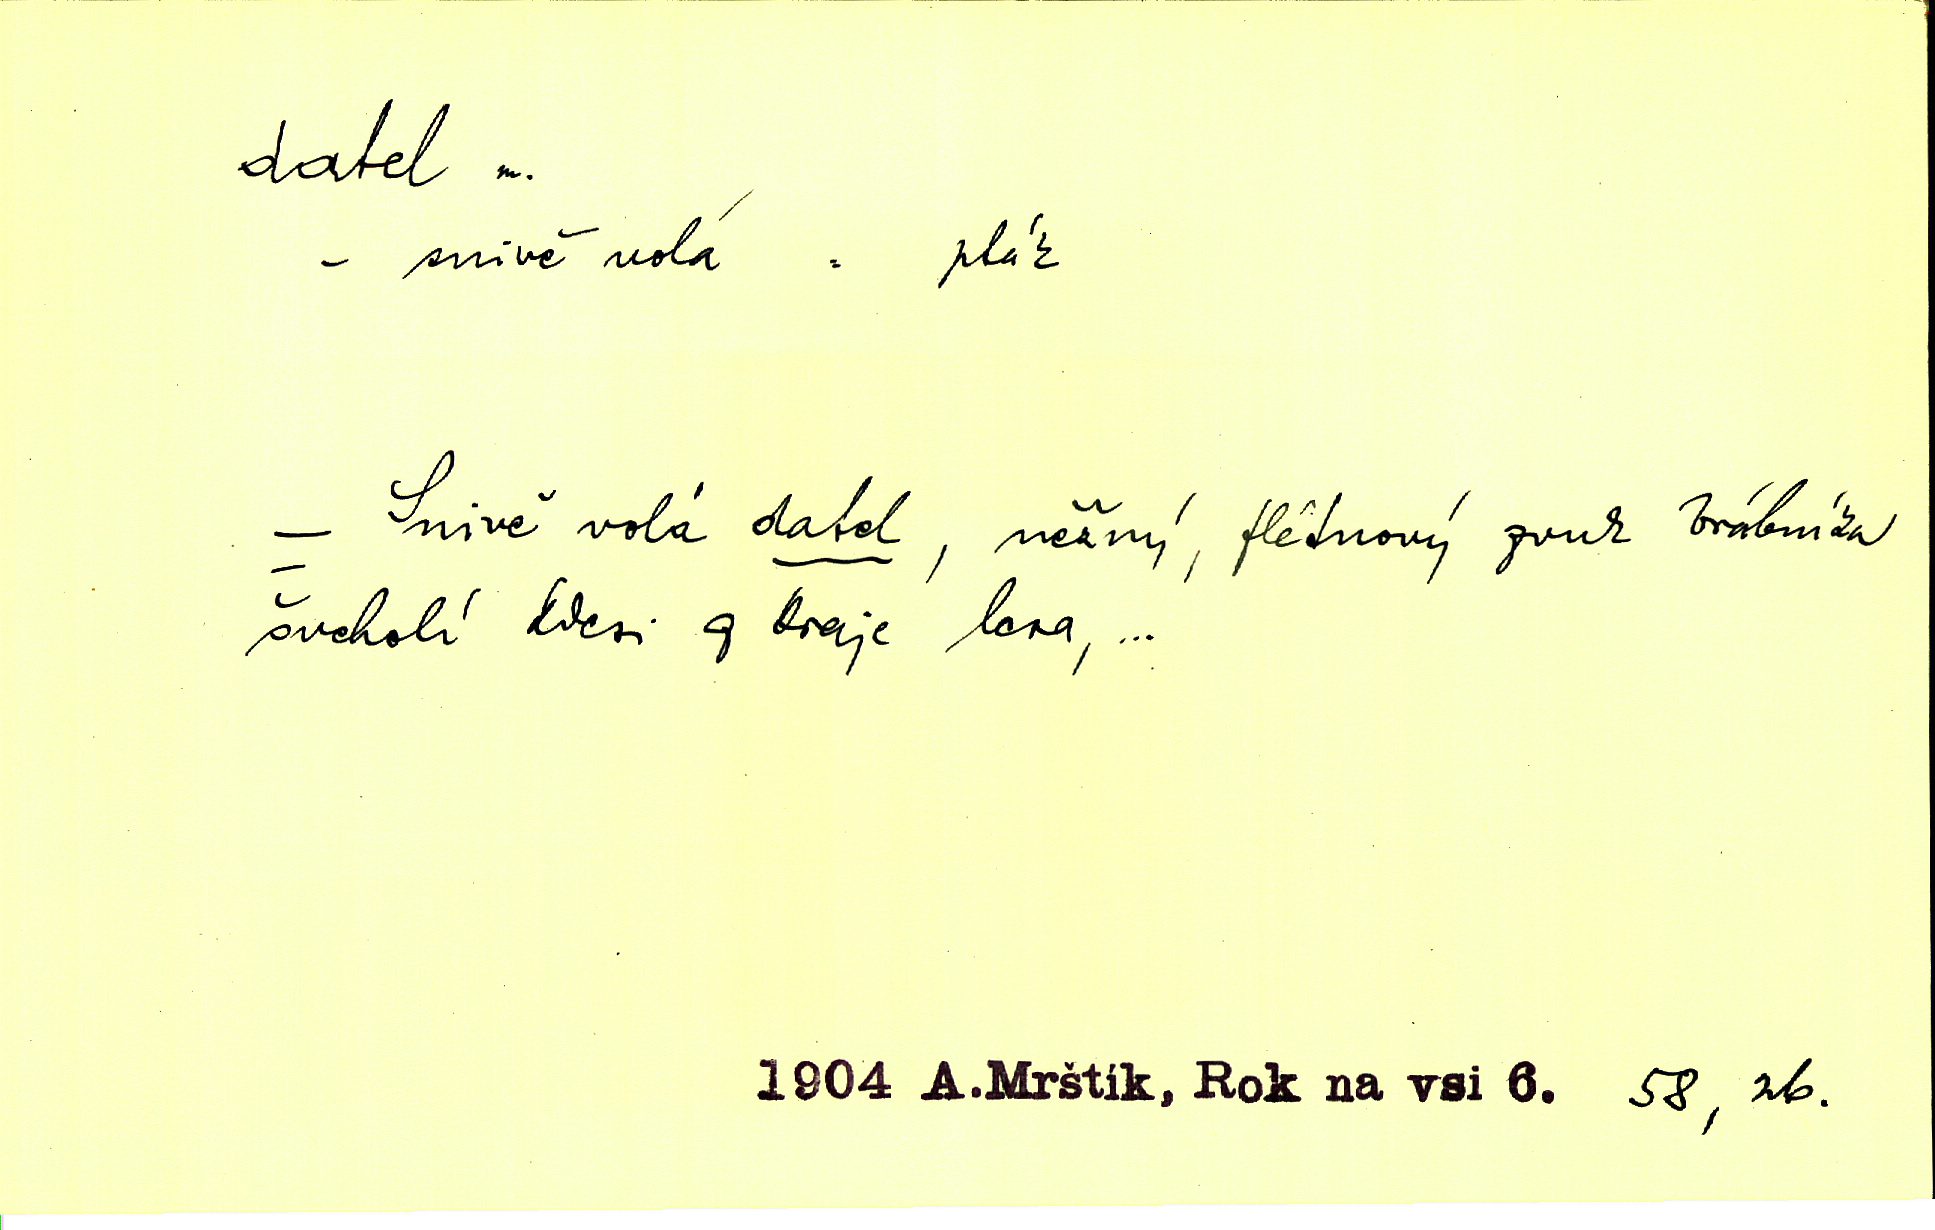 datel m.
- snivě volá = pták
— Snivě volá datel, něžný, flétnový zvuk brábníka
šveholí kdesi q kraje lesa, ...
1904 A.Mrštík, Rok na vsi 6. 58, zb.